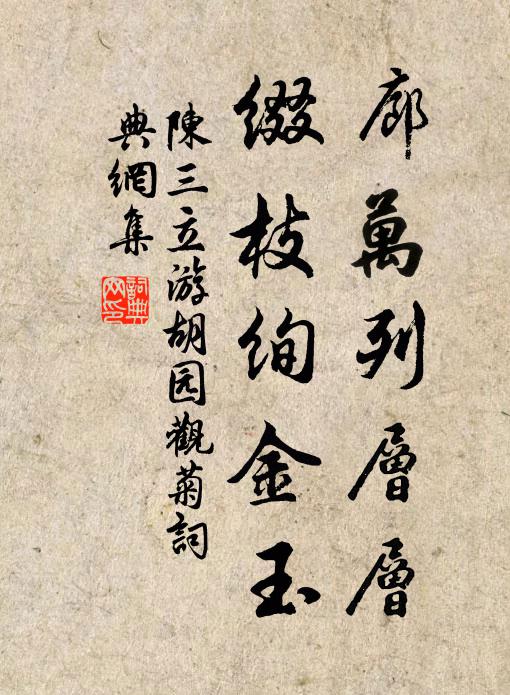 廊萬列層層
綴枝絢金玉
陳三立游胡园觀菊詞
典網集
詞典網印